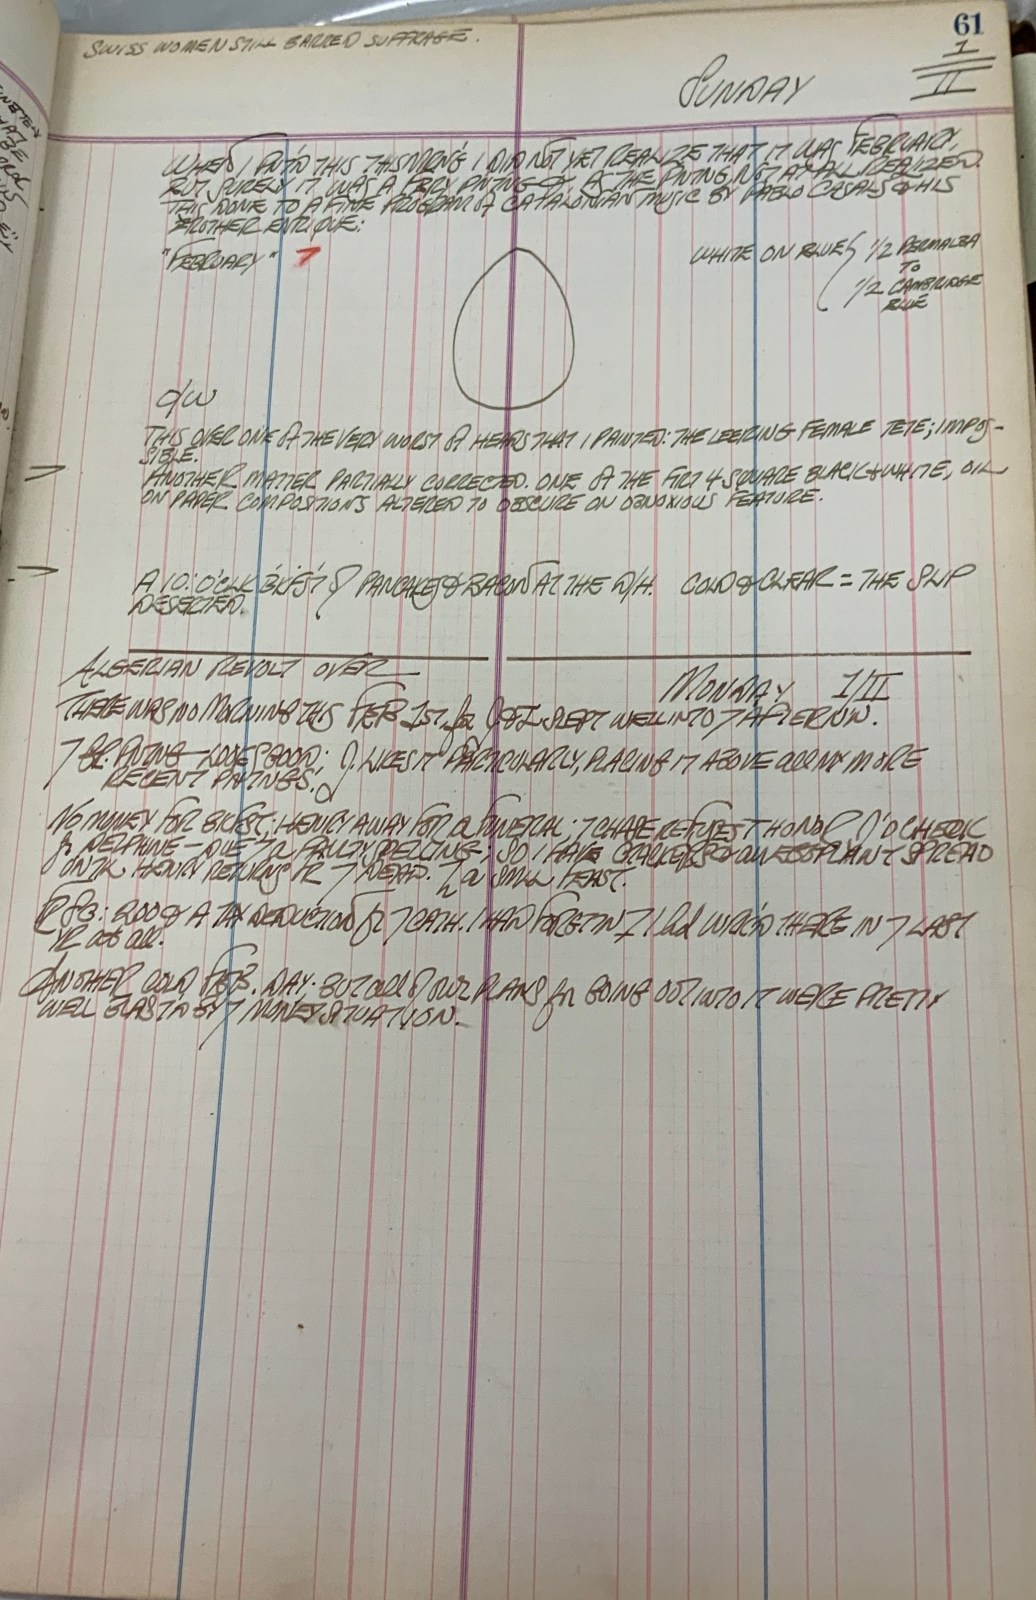 61
SWISS WOMEN STILL BARRED SUFFRAGE.
1
II
SUNDAY
WHEN I PNT'D THIS THIS MRN'G I DID NOT YET REALIZE THAT IT WAS FEBRUARY,
BUT SURELY IT WAS A FBRY PNTING AS THE PNTING NOT AT ALL REALIZED.
THIS DONE TO A FINE PROGRAM of CATALONIAN MUSIC BY PABLO CASALS & HIS
BROTHER ENRIQUE:
"FEBRUARY" 7
WHITE ON BLUE { 1/2 PERMALBA
TO
1/2 CAMBRIDGE
BLUE
O/W
THIS OVER ONE of THE VERY WORST of HEADS THAT I PAINTED: THE LEERING FEMALE TETE; IMPOS-
SIBLE.
ANOTHER MATTER PARTIALLY CORRECTED. ONE of THE FIRT 4 SQUARE BLACK & WHITE, OIL
ON PAPER COMPOSITIONS ALTERED TO OBSCURE ON OBNOXIOUS FEATURE.
A 10: O'CLK BKFST of PANCAKES & BACON AT THE D/H. COLD & CLEAR = THE SLIP
DESERTED.
ALGERIAN REVOLT OVER
MONDAY 1/II
THERE WAS NO MORNING THIS FEB 1ST, for J & I SLEPT WELL INTO 7 AFTERNN.
7 PNTING LOOKS GOOD; J. LIKES IT PARTICULARLY, PLACING IT ABOVE all MY MORE
RECENT PNTINGS.
NO MONEY FOR BKFST; HENRY AWAY FOR a FUNERAL; 7 CHASE REFUSES T HONOR J'D CHECK
for DELPHINE — DUE T a FAULTY SPELLING; SO I HAVE CRACKERS & EGGPLANT SPREAD
UNTIL HENRY RETURNS FR 7 DEAD. a SMALL FEAST.
200 & A TAX DEDUCTION for 7 CATH. I HAD FORGTTN I had WRK'D THERE IN 7 LAST
YR at all.
ANOTHER COLD FEB. DAY. BUT all of OUR PLANS for GOING OUT INTO IT WERE PRETTY
WELL BLAST'D BY 7 MONEY SITUATION.